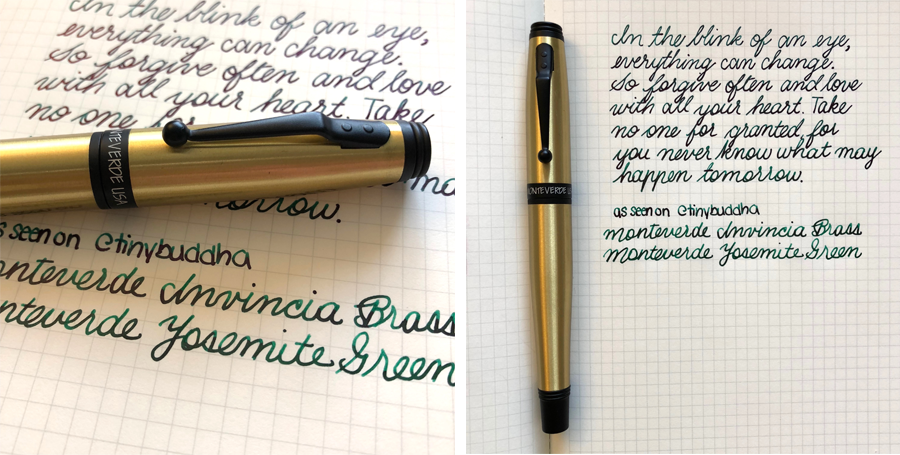 In the blink of an eye,
everything can change.
So forgive often and love
with all your heart. Take
no one for
tomorrow.
MONTEVERDE USA
as seen on @tinybuddha
monteverde Invincia Brass
monteverde Yosemite Green
In the blink of an eye,
everything can change.
So forgive often and love
with all your heart. Take
no one for granted, for
you never know what may
happen tomorrow.
MONTEVERDE U
as seen on @tinybuddha
monteverde Invincia Brass
monteverde Yosemite Green